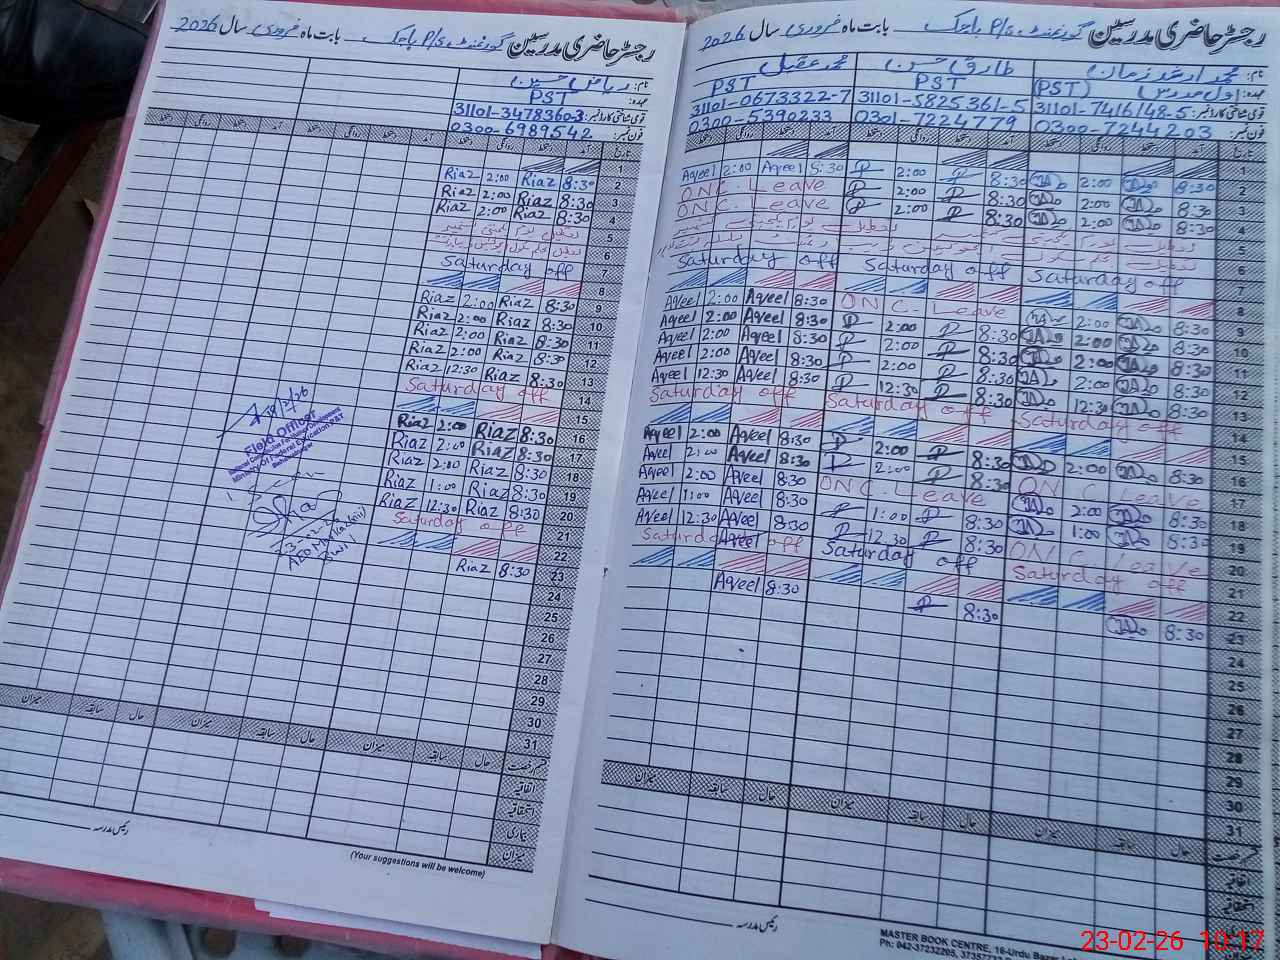 رجسٹر حاضری مدرسین گورنمنٹ P/S باجک بابت ماہ فروری سال 2026
نام: ریاض حسین
عہدہ: PST
قومی شناختی کارڈ نمبر: 31101-3478360-3
فون نمبر: 0300-6989542
تاریخ آمد دستخط روانگی دستخط آمد دستخط روانگی دستخط آمد دستخط روانگی دستخط
1
2 8:30 Riaz 2:00 Riaz
3 8:30 Riaz 2:00 Riaz
4 8:30 Riaz 2:00 Riaz
5
6
7 Saturday off
8
9 8:30 Riaz 2:00 Riaz
10 8:30 Riaz 2:00 Riaz
11 8:30 Riaz 2:00 Riaz
12 8:30 Riaz 2:00 Riaz
13 8:30 Riaz 12:30 Riaz
14 Saturday off
15
16 8:30 Riaz 2:00 Riaz
17 8:30 Riaz 2:00 Riaz
18 8:30 Riaz 2:00 Riaz
19 8:30 Riaz 1:00 Riaz
20 8:30 Riaz 12:30 Riaz
21 Saturday off
22
23 8:30 Riaz
24
25
26
27
28
29
30
31
Field Officer
حال سابقہ میزان حال سابقہ میزان حال سابقہ میزان
اتفاقیہ
استحقاقیہ
بیماری
میزان
رئیس مدرسہ
(Your suggestions will be welcome)
رجسٹر حاضری مدرسین گورنمنٹ P/S باجک بابت ماہ فروری سال 2026
نام: محمد ارشد زمان طارق حسن محمد عقیل
عہدہ: اول مدرس (PST) PST PST
قومی شناختی کارڈ نمبر: 31101-7416148-5 31101-5825361-5 31101-0673322-7
فون نمبر: 0300-7244203 0301-7224779 0300-5390233
تاریخ آمد دستخط روانگی دستخط آمد دستخط روانگی دستخط آمد دستخط روانگی دستخط
1
2 8:30 2:00 8:30 2:00 8:30 Aqeel 2:00 Aqeel
3 8:30 2:00 8:30 2:00 ON C. Leave
4 8:30 2:00 8:30 2:00 ON C. Leave
5
6
7 Saturday off Saturday off Saturday off
8
9 8:30 2:00 ON C. Leave 8:30 Aqeel 2:00 Aqeel
10 8:30 2:00 8:30 2:00 8:30 Aqeel 2:00 Aqeel
11 8:30 2:00 8:30 2:00 8:30 Aqeel 2:00 Aqeel
12 8:30 2:00 8:30 2:00 8:30 Aqeel 2:00 Aqeel
13 8:30 12:30 8:30 12:30 8:30 Aqeel 12:30 Aqeel
14 Saturday off Saturday off Saturday off
15
16 8:30 2:00 8:30 2:00 8:30 Aqeel 2:00 Aqeel
17 ON C Leave 8:30 2:00 8:30 Aqeel 2:00 Aqeel
18 8:30 2:00 ON C. Leave 8:30 Aqeel 2:00 Aqeel
19 8:30 1:00 8:30 1:00 8:30 Aqeel 1:00 Aqeel
20 ON C Leave 8:30 12:30 8:30 Aqeel 12:30 Aqeel
21 Saturday off Saturday off Saturday off
22
23 8:30 8:30 8:30 Aqeel
24
25
26
27
28
29
30
31
حال سابقہ میزان حال سابقہ میزان حال سابقہ میزان
اتفاقیہ
استحقاقیہ
رئیس مدرسہ
MASTER BOOK CENTRE, 16-Urdu Bazar
Ph: 042-37232205
23-02-26 10:17